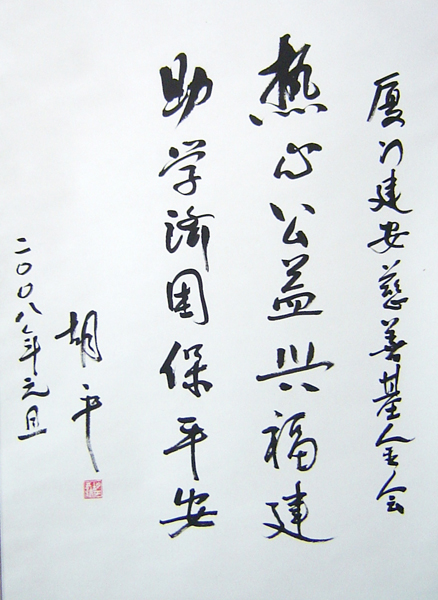 厦门建安慈善基金会
热心公益兴福建
助学济困保平安
胡平
二〇〇八年元旦